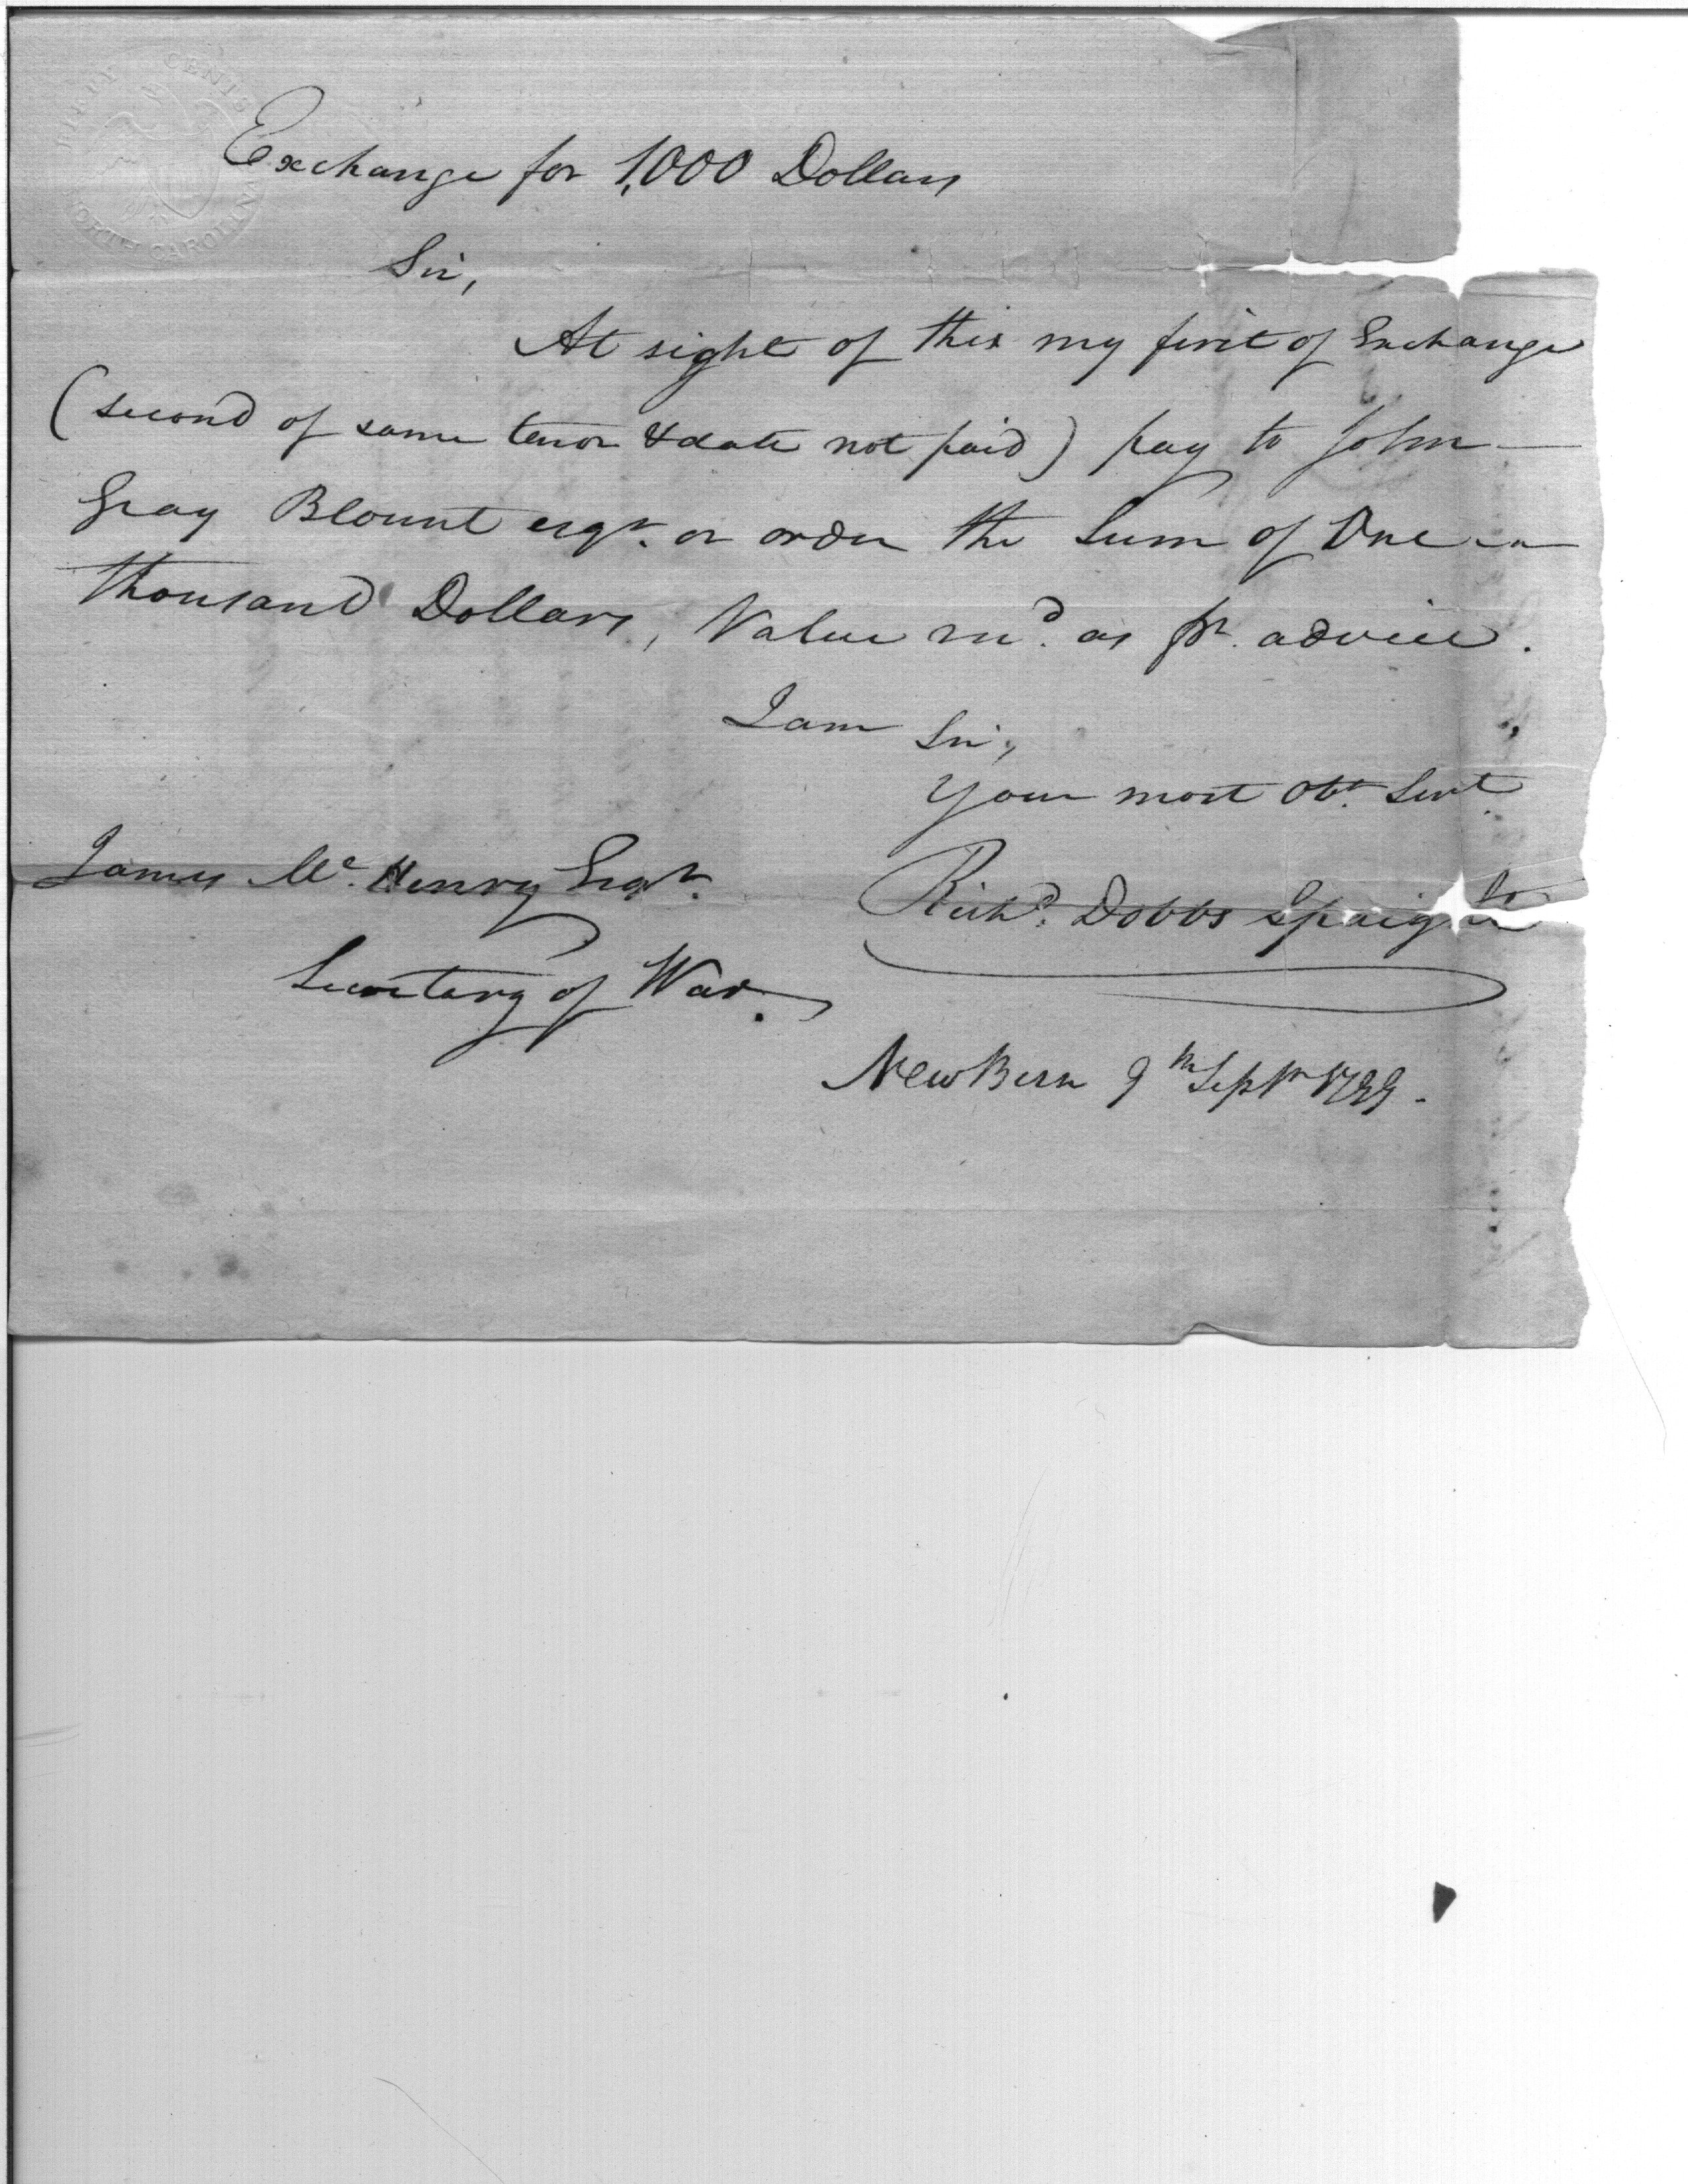 FIFTY CENTS
NORTH CAROLINA
Exchange for 1,000 Dollars
Sir,
At sight of this my first of Exchange
(second of same tenor & date not paid) pay to John
Gray Blount esqr. or order the Sum of One
thousand Dollars, Value recd. as pr. advice.
I am Sir,
Your most Obt. Servt.
James Mc. Henry Esqr.
Richd. Dobbs Spaight
Secretary of War.
New Bern 9th Septr 1799.